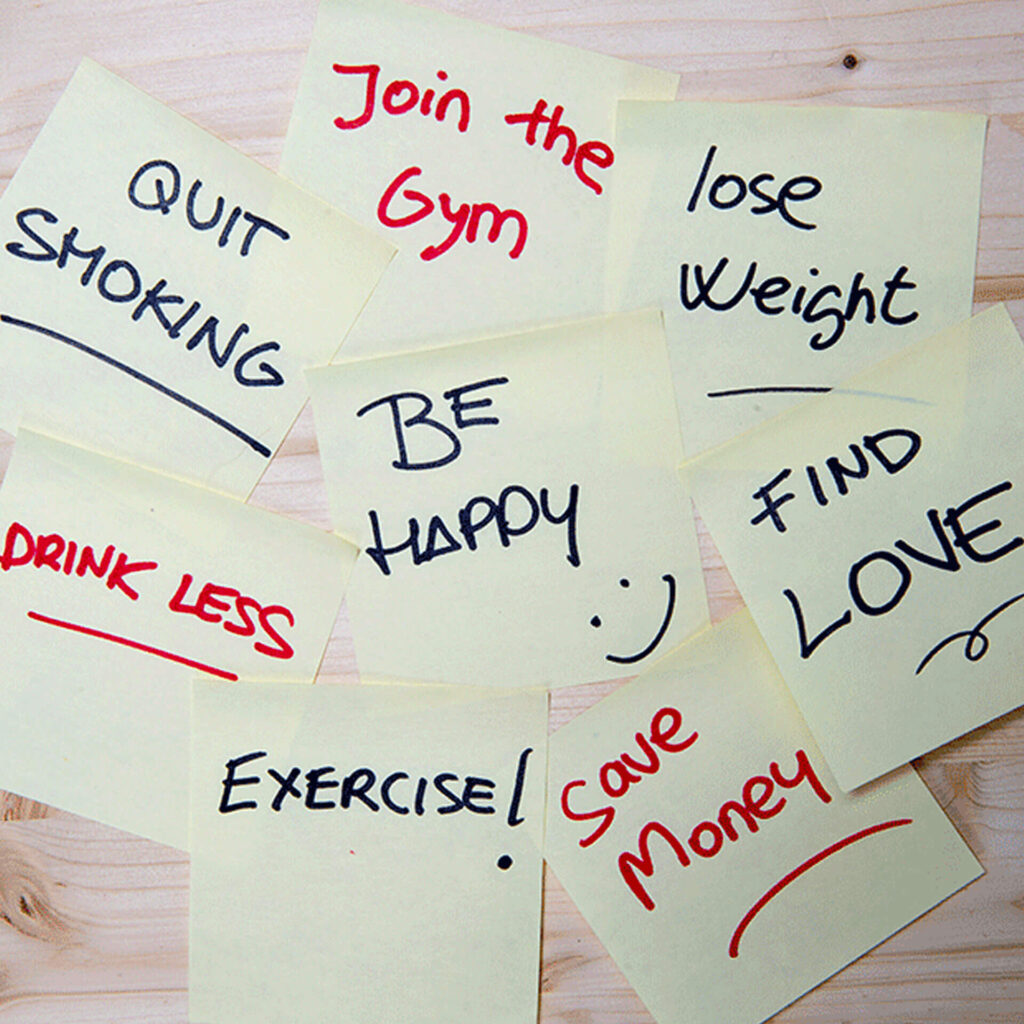 Join the
Gym
QUIT
SMOKING
lose
Weight
BE
HAPPY
:)
FIND
LOVE
DRINK LESS
EXERCISE!
Save
Money